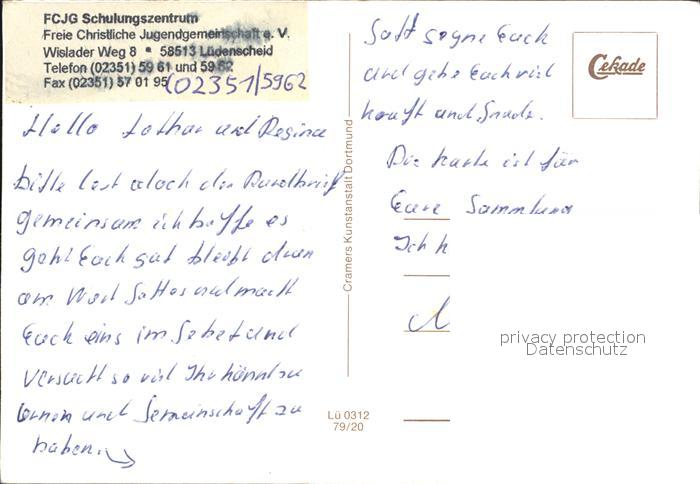 FCJG Schulungszentrum
Freie Christliche Jugendgemeinschaft e. V.
Wislader Weg 8 * 58513 Lüdenscheid
Telefon (02351) 59 61 und 59 62
Fax (02351) 57 01 95
(02351/5962
Hallo Lothar und Regina
bitte lest doch den Rundbrief
gemeinsam ich hoffe es
geht Euch gut bleibt dran
am Wort Gottes und macht
Euch eins im Gebet und
versucht so viel Ihr könnt zu
lernen und Gemeinschaft zu
haben.
Cramers Kunstanstalt Dortmund
Lü 0312
79/20
Cekade
Gott segne Euch
und gebe Euch viel
kraft und Gnade.
Die karte ist für
Eure Sammlung
Ich h
privacy protection
Datenschutz